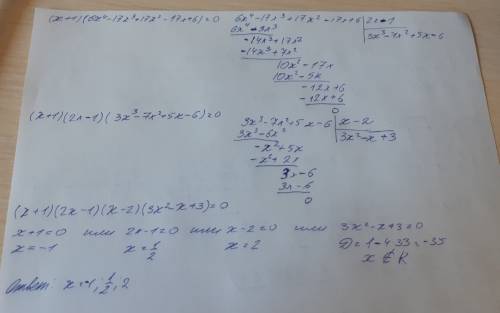 (x+1)(6x⁴-17x³+17x²-17x+6)=0
6x⁴-17x³+17x²-17x+6 | 2x-1
6x⁴-3x³ | 3x³-7x²+5x-6
-14x³+17x²
-14x³+7x²
10x²-17x
10x²-5x
-12x+6
-12x+6
0
(x+1)(2x-1)(3x³-7x²+5x-6)=0
3x³-7x²+5x-6 | x-2
3x³-6x² | 3x²-x+3
-x²+5x
-x²+2x
3x-6
3x-6
0
(x+1)(2x-1)(x-2)(3x²-x+3)=0
x+1=0 или 2x-1=0 или x-2=0 или 3x²-x+3=0
x=-1 x=1/2 x=2 D=1-4·3·3=-35
x∉R
Ответ: x=-1; 1/2; 2